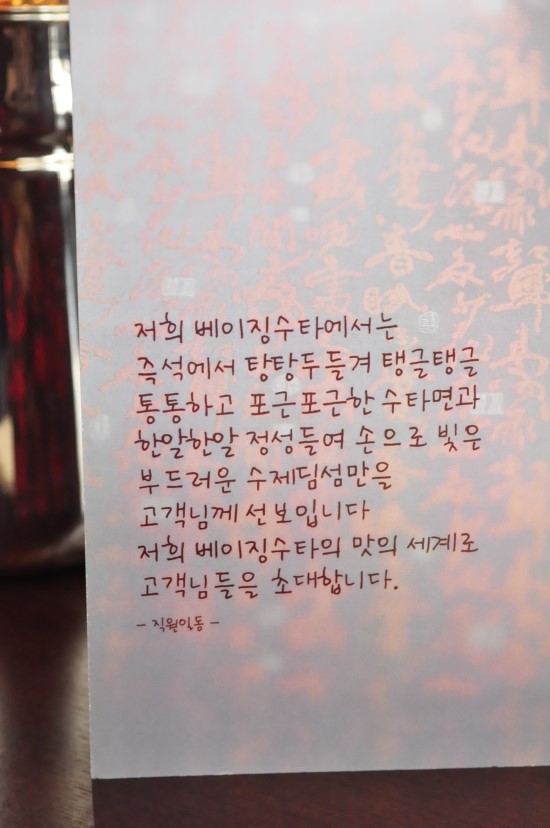 저희 베이징수타에서는
즉석에서 탕탕두들겨 탱글탱글
통통하고 포근포근한 수타면과
한알한알 정성들여 손으로 빚은
부드러운 수제딤섬만을
고객님께 선보입니다
저희 베이징수타의 맛의 세계로
고객님들을 초대합니다.
- 직원일동 -